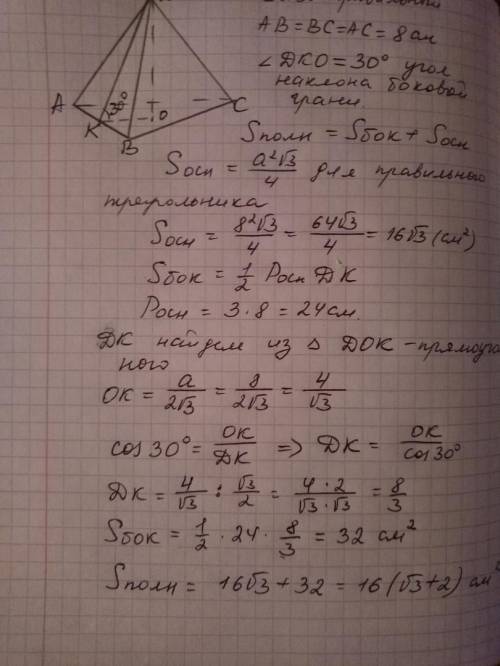 AB=BC=AC=8см
∠ДКО=30° угол
наклона боковой
грани.
А
30°
К
В
О
С
Sполн = Sбок + Sосн
Sосн = a²√3/4 для правильного
треугольника
Sосн = 8²√3/4 = 64√3/4 = 16√3 (см²)
Sбок = 1/2 Pосн ДК
Pосн = 3·8 = 24см.
ДК найдем из △ ДОК-прямоуголь
ного
ОК = a/2√3 = 8/2√3 = 4/√3
cos 30° = ОК/ДК => ДК = ОК/cos30°
ДК = 4/√3 : √3/2 = 4·2/√3·√3 = 8/3
Sбок = 1/2 · 24 · 8/3 = 32 см²
Sполн = 16√3+32 = 16(√3+2) см²